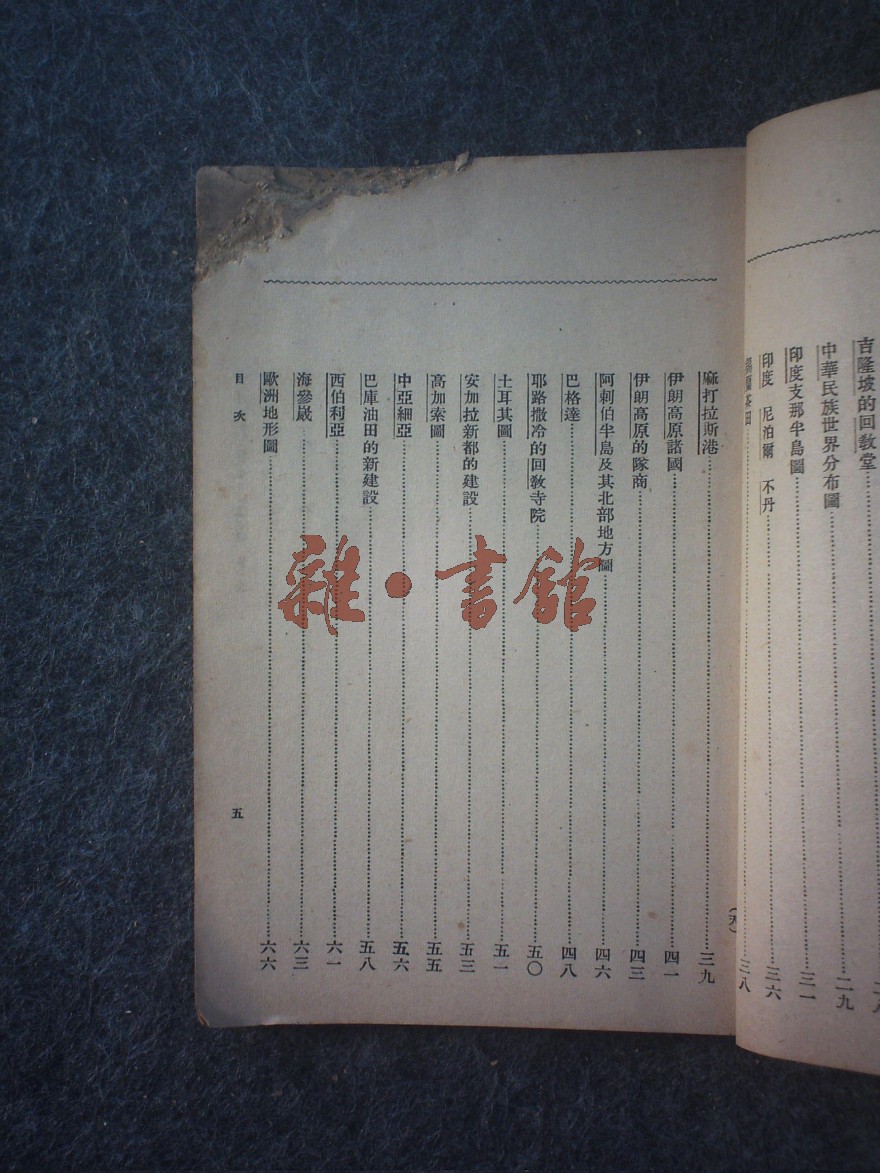 吉隆坡的回教堂
中華民族世界分布圖……二九
印度支那半島圖……三一
印度 尼泊爾 不丹……三六
茶田……三八
(九)
麻打拉斯港……三九
伊朗高原諸國……四一
伊朗高原的隊商……四三
阿剌伯半島及其北部地方圖……四六
巴格達……四八
耶路撒冷的回教寺院……五〇
土耳其圖……五一
安加拉新都的建設……五三
高加索圖……五五
中亞細亞……五六
巴庫油田的新建設……五八
西伯利亞……六一
海參崴……六三
歐洲地形圖……六六
目次
五
雜·書館